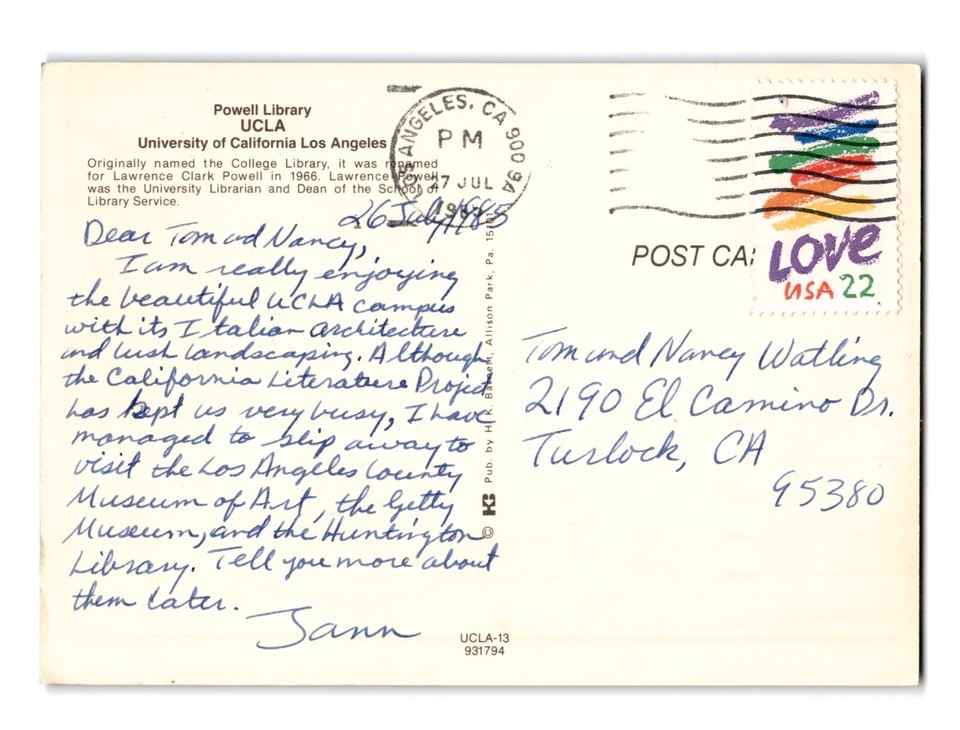 Powell Library
UCLA
University of California Los Angeles
Originally named the College Library, it was renamed
for Lawrence Clark Powell in 1966. Lawrence Powell
was the University Librarian and Dean of the School of
Library Service.
26 July 1985
Dear Tom and Nancy,
I am really enjoying
the beautiful UCLA campus
with its Italian architecture
and lush landscaping. Although
the California Literature Project
has kept us very busy, I have
managed to slip away to
visit the Los Angeles County
Museum of Art, the Getty
Museum, and the Huntington
Library. Tell you more about
them later.
Jann
UCLA-13
931794
© Pub. by H. K. Allison Park, Pa.
ANGELES, CA 900
PM
27 JUL
POST CA
LOVE
USA 22
Tom and Nancy Watling
2190 El Camino Dr.
Turlock, CA
95380